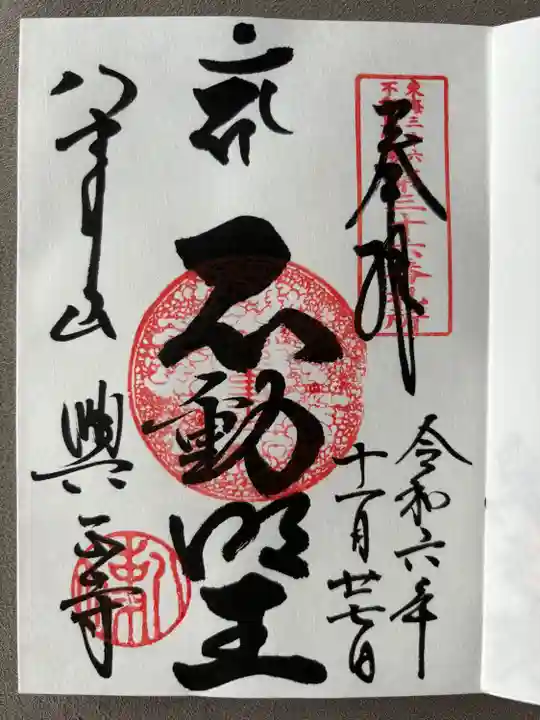 東海三十六
不動尊霊場
三十六番札所
奉拝
令和六年
十一月廿七日
不動明王
八事山
興正寺